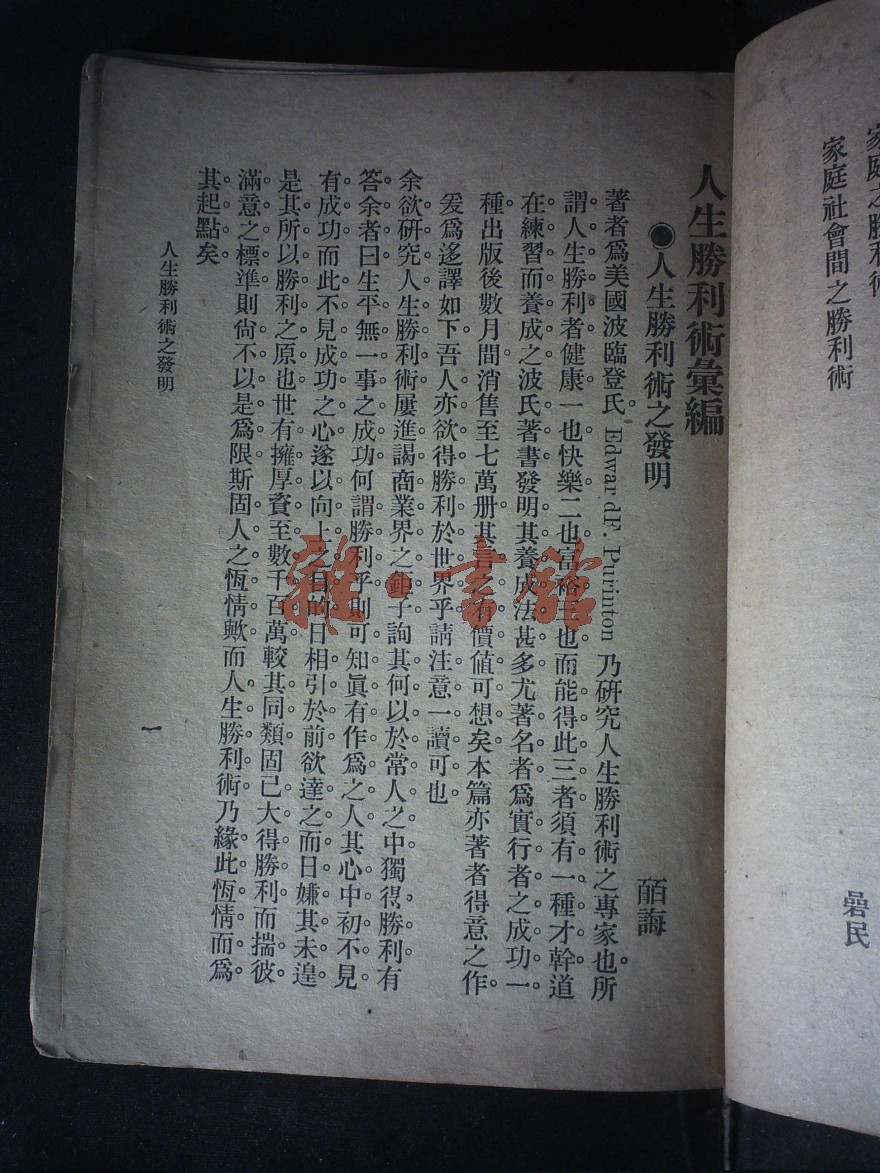 家庭之勝利術
家庭社會間之勝利術
礐民
人生勝利術彙編
●人生勝利術之發明
皕誨
著者爲美國波臨登氏 Edwar dF. Purinton 乃研究人生勝利術之專家也。所
謂人生勝利者健康一也快樂二也富裕三也而能得此三者須有一種才幹道
在練習而養成之波氏著書發明其養成法甚多尤著名者爲實行者之成功一
種出版後數月間消售至七萬册其言之有價值可想矣本篇亦著者得意之作
爰爲迻譯如下吾人亦欲得勝利於世界乎請注意一讀可也
余欲研究人生勝利術屢進謁商業界之鉅子詢其何以於常人之中獨得勝利有
答余者曰生平無一事之成功何謂勝利乎則可知眞有作爲之人其心中初不見
有成功而此不見成功之心遂以向上之目的日相引於前欲達之而日嫌其未遑
是其所以勝利之原也世有擁厚資至數千百萬較其同類固已大得勝利而揣彼
滿意之標準則尙不以是爲限斯固人之恆情歟而人生勝利術乃緣此恆情而爲
其起點矣
人生勝利術之發明
一
雜·書館